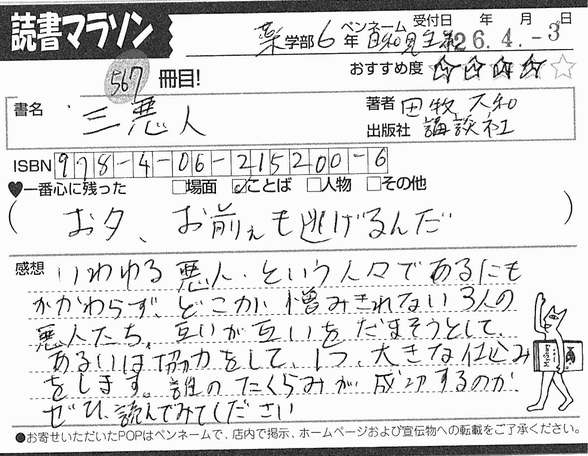 読書マラソン
薬学部 6年 ペンネーム 日和見主義 受付日 年 月 日
26.4.-3
567冊目! おすすめ度 ☆☆☆☆☆
書名 三悪人
著者 田牧大和
出版社 講談社
ISBN 978-4-06-215200-6
♥一番心に残った □場面 ☑ことば □人物 □その他
(お夕、お前ぇも逃げるんだ)
感想 いわゆる悪人、という人々であるにも
かかわらず、どこか憎みきれない3人の
悪人たち。互いが互いをだまそうとして、
あるいは協力をして、1つ、大きな仕込み
をします。誰のたくらみが成功するのか
ぜひ、読んでみてください
●お寄せいただいたPOPはペンネームで、店内で掲示、ホームページおよび宣伝物への転載をご了承ください。